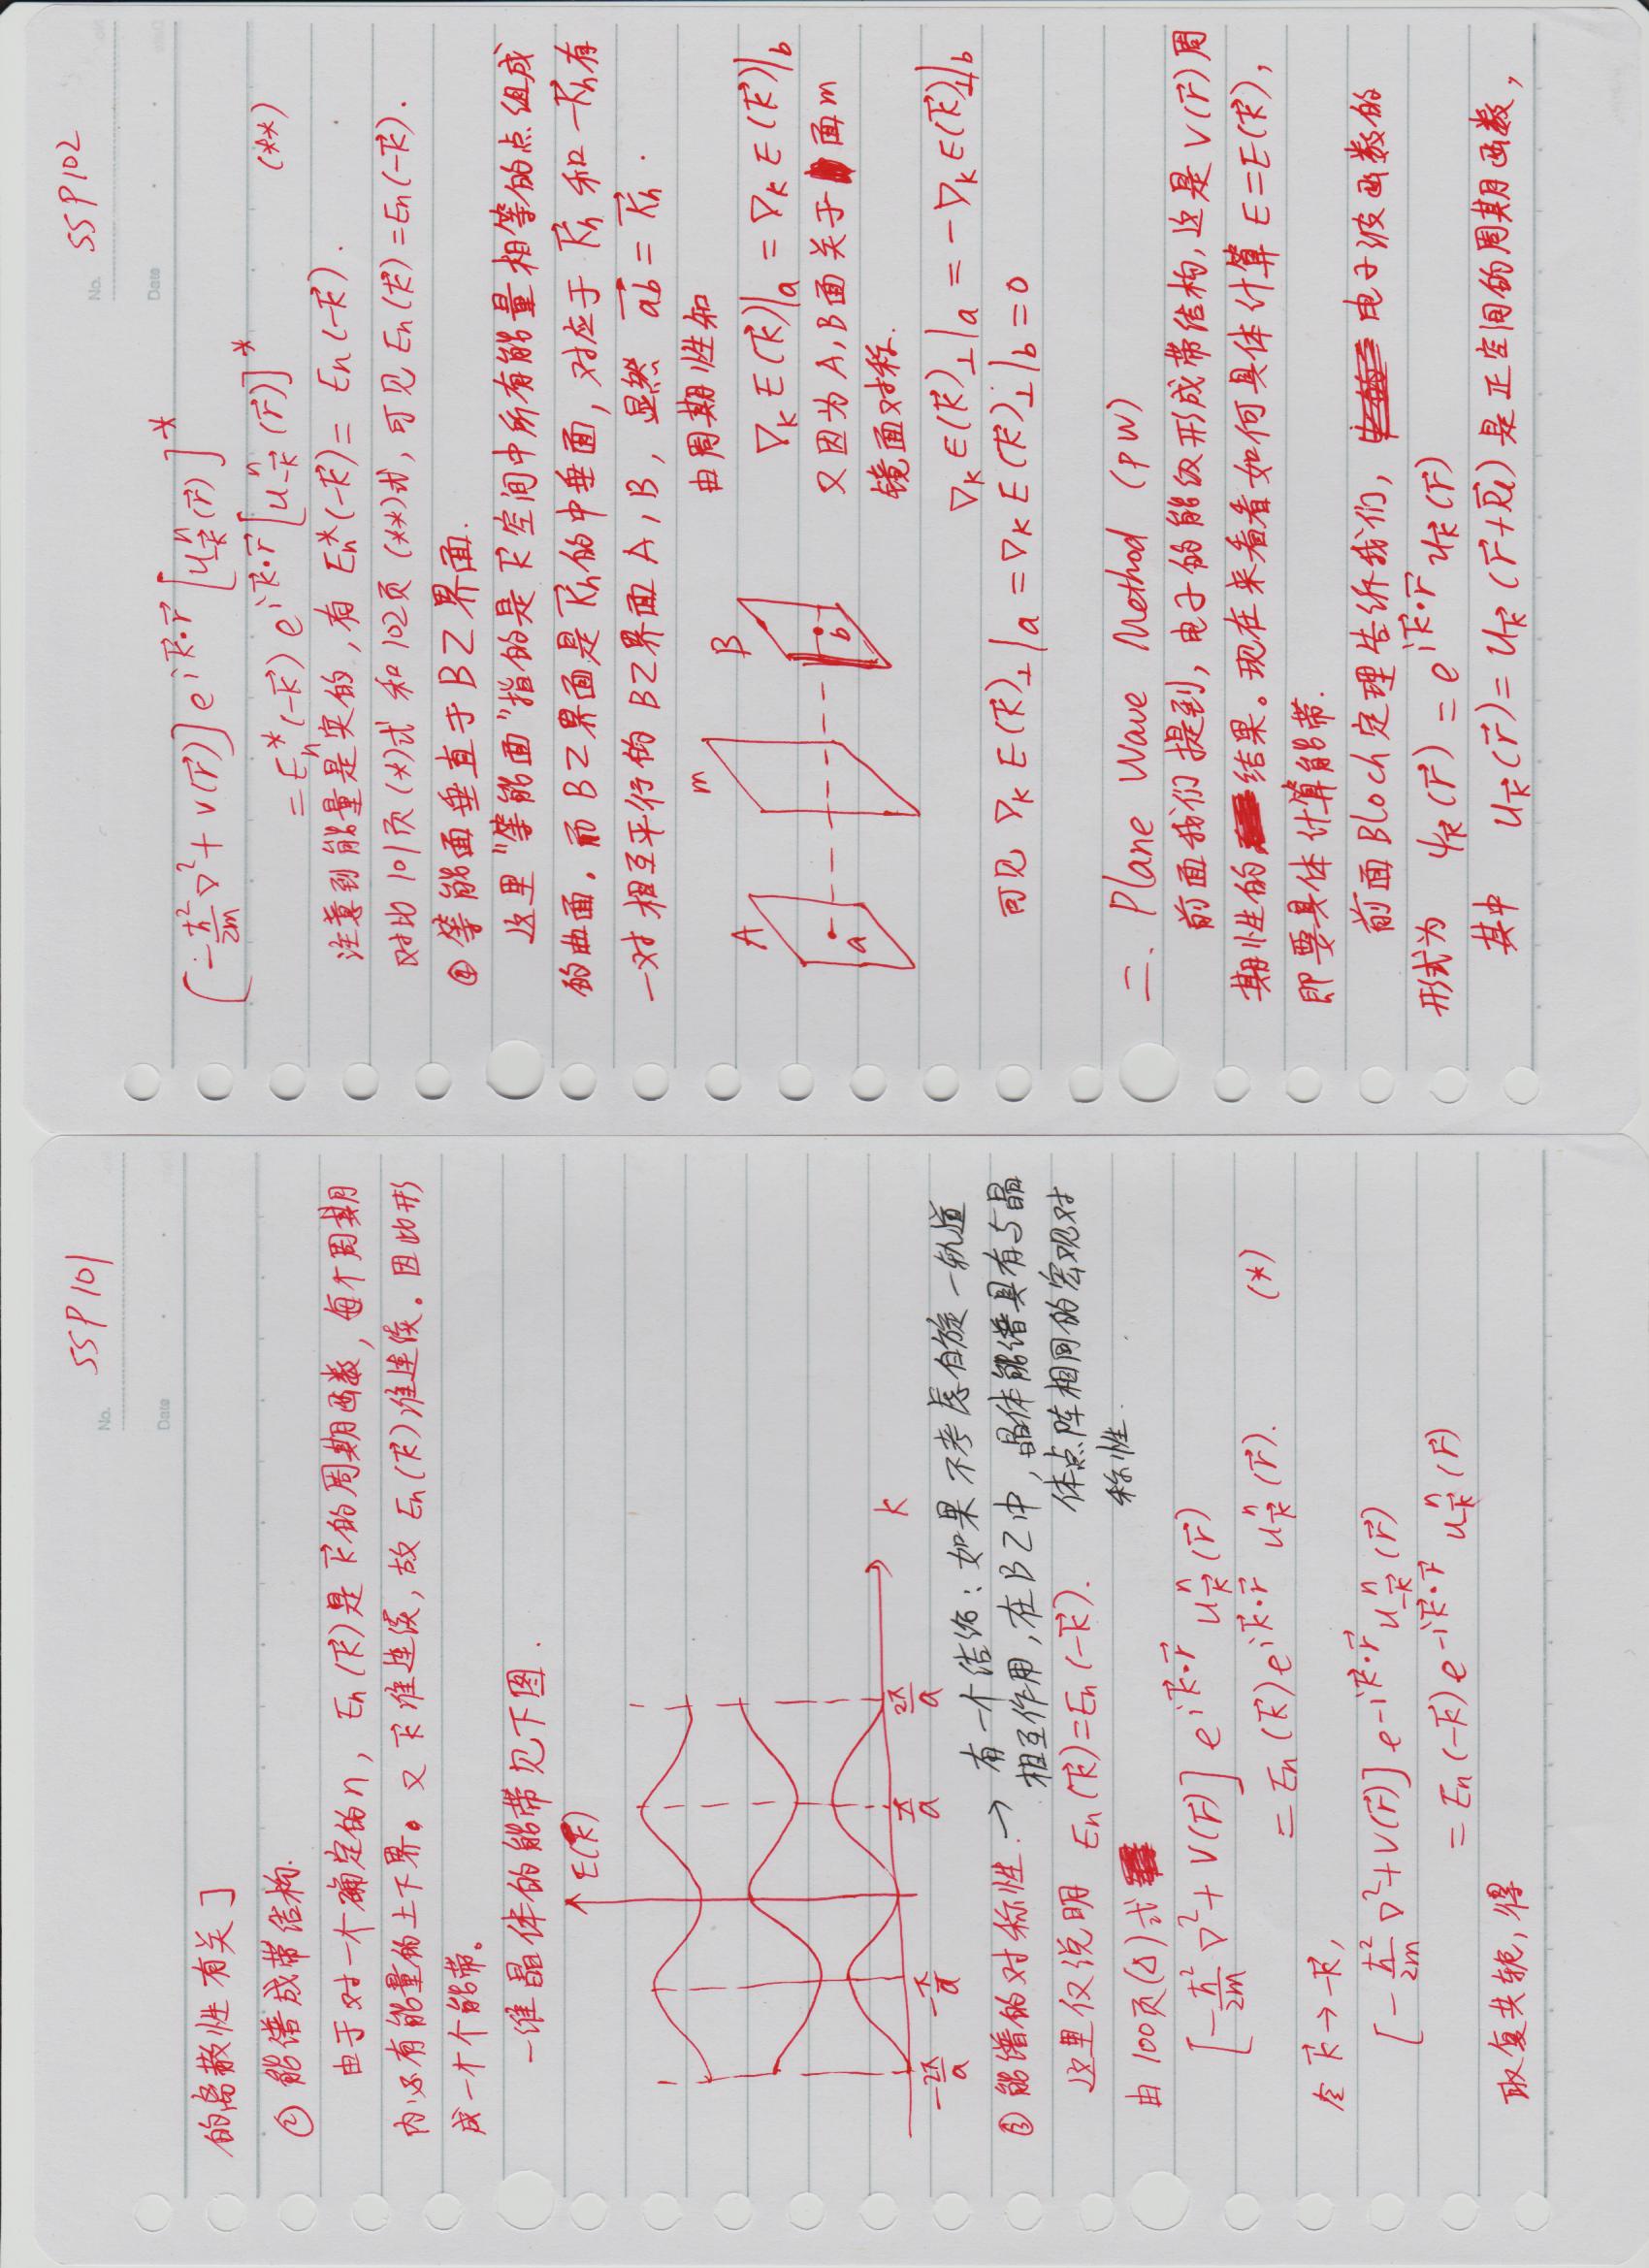 SSP101
No.
Date
的离散性有关]
② 能谱成带结构.
由于对一个确定的n, En(k⃗)是k⃗的周期函数, 每个周期
内必有能量的上下界。又k⃗准连续, 故En(k⃗)准连续。因此形
成一个个能带。
一维晶体的能带见下图.
E(k⃗)
k
-2π/a
-π/a
π/a
2π/a
③ 能谱的对称性. → 有一个结论: 如果不考虑自旋-轨道
相互作用, 在BZ中, 晶体能谱具有与晶
体点阵相同的宏观对
称性.
这里仅说明 En(k⃗)=En(-k⃗).
由100页(Δ)式
[-ℏ²/2m ∇²+V(r⃗)] e^{ik⃗·r⃗} u^n_{k⃗}(r⃗)
= En(k⃗)e^{ik⃗·r⃗} u^n_{k⃗}(r⃗). (*)
令 k⃗→-k⃗,
[-ℏ²/2m ∇²+V(r⃗)] e^{-ik⃗·r⃗} u^n_{-k⃗}(r⃗)
= En(-k⃗)e^{-ik⃗·r⃗} u^n_{-k⃗}(r⃗)
取复共轭, 得
SSP102
No.
Date
[-ℏ²/2m ∇²+V(r⃗)] e^{ik⃗·r⃗} [u^n_{-k⃗}(r⃗)]*
= E*n(-k⃗) e^{ik⃗·r⃗} [u^n_{-k⃗}(r⃗)]* (**)
注意到能量是实的, 有 En*(-k⃗)= En(-k⃗).
对比101页(*)式和102页(**)式, 可见En(k⃗)=En(-k⃗).
④ 等能面垂直于BZ界面.
这里“等能面”指的是k⃗空间中所有能量相等的点组成
的曲面. 而BZ界面是K⃗h的中垂面, 对应于K⃗h和-K⃗h有
一对相互平行的BZ界面A, B, 显然 ab⃗ = K⃗h.
A
m
B
a
b
由周期性知
∇k E(k⃗)|a = ∇k E(k⃗)|b
又因为A,B面关于面m
镜面对称.
∇k E(k⃗)⊥|a = -∇k E(k⃗)⊥|b
可见 ∇k E(k⃗)⊥|a = ∇k E(k⃗)⊥|b = 0
二. Plane Wave Method (PW)
前面我们提到, 电子的能级形成带结构, 这是V(r⃗)周
期性的结果。现在来看看如何具体计算E=E(k⃗),
即要具体计算能带.
前面Bloch定理告诉我们, 电子波函数的
形式为 ψk⃗(r⃗) = e^{ik⃗·r⃗} uk⃗(r⃗)
其中 uk⃗(r⃗)= uk⃗(r⃗+R⃗l)是正空间的周期函数,